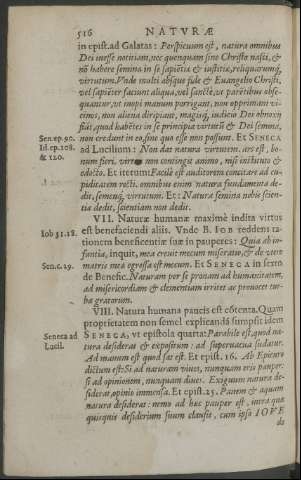 516 NATVRÆ
in epist. ad Galatas: Perspicuum est, natura omnibus
Dei inesse notitiam, nec quenquam sine Christo nasci, &
nō habere semina in se sapiētiæ & iustitiæ, reliquarumq́,
virtutum. Vnde multi absque fide & Euangelio Christi,
vel sapiēter faciunt aliqua, vel sanctè, vt parētibus obse-
quantur, vt inopi manum porrigant, non opprimant vi-
cinos, non aliena diripiant, magisq́, iudicio Dei obnoxi
fiūt, quod habētes in se principia virtutū & Dei semina,
Sen. ep. 90.
Id. ep. 108.
& 120.
non credunt in eo, sine quo esse non possunt. Et SENECA
ad Lucilium: Non dat natura virtutem. ars est, bo-
num fieri. virtus non contingit animo, nisi instituto &
edocto. Et iterum: Facilè est auditorem concitare ad cu-
piditatem recti. omnibus enim natura fundamenta de-
dit, semenq́, virtutum. Et: Natura semina nobis scien-
tiæ dedit, scientiam non dedit.
VII. Naturæ humanæ maximè indita virtus
Iob 31. 18.
est benefaciendi aliis. Vnde B. IOB reddens ra-
tionem beneficentiæ suæ in pauperes: Quia ab in-
fantia, inquit, mea creuit mecum miseratio, & de vtero
Sen. c. 29.
matris mea egressa est mecum. Et SENECA in sexto
de Benefic. Naturam per se pronam ad humanitatem,
ad misericordiam & clementiam irritet ac prouocet tur-
ba gratarum.
VIII. Natura humana paucis est cōtenta. Quam
proprietatem non semel explicandā sumpsit idem
Seneca ad
Lucil.
SENECA, vt epistola quarta: Parabile est, quod na-
tura desiderat & expositum: ad superuacua sudatur.
Ad manum est quod sat est. Et epist. 16. Ab Epicuro
dictum est: Si ad naturam viues, nunquam eris pauper:
si ad opinionem, nunquam diues. Exiguum natura de-
siderat, opinio immensa. Et epist. 25. Panem & aquam
natura desiderat: nemo ad hæc pauper est, intra quæ
quisquis desiderium suum clausit, cum ipso IOVE
de